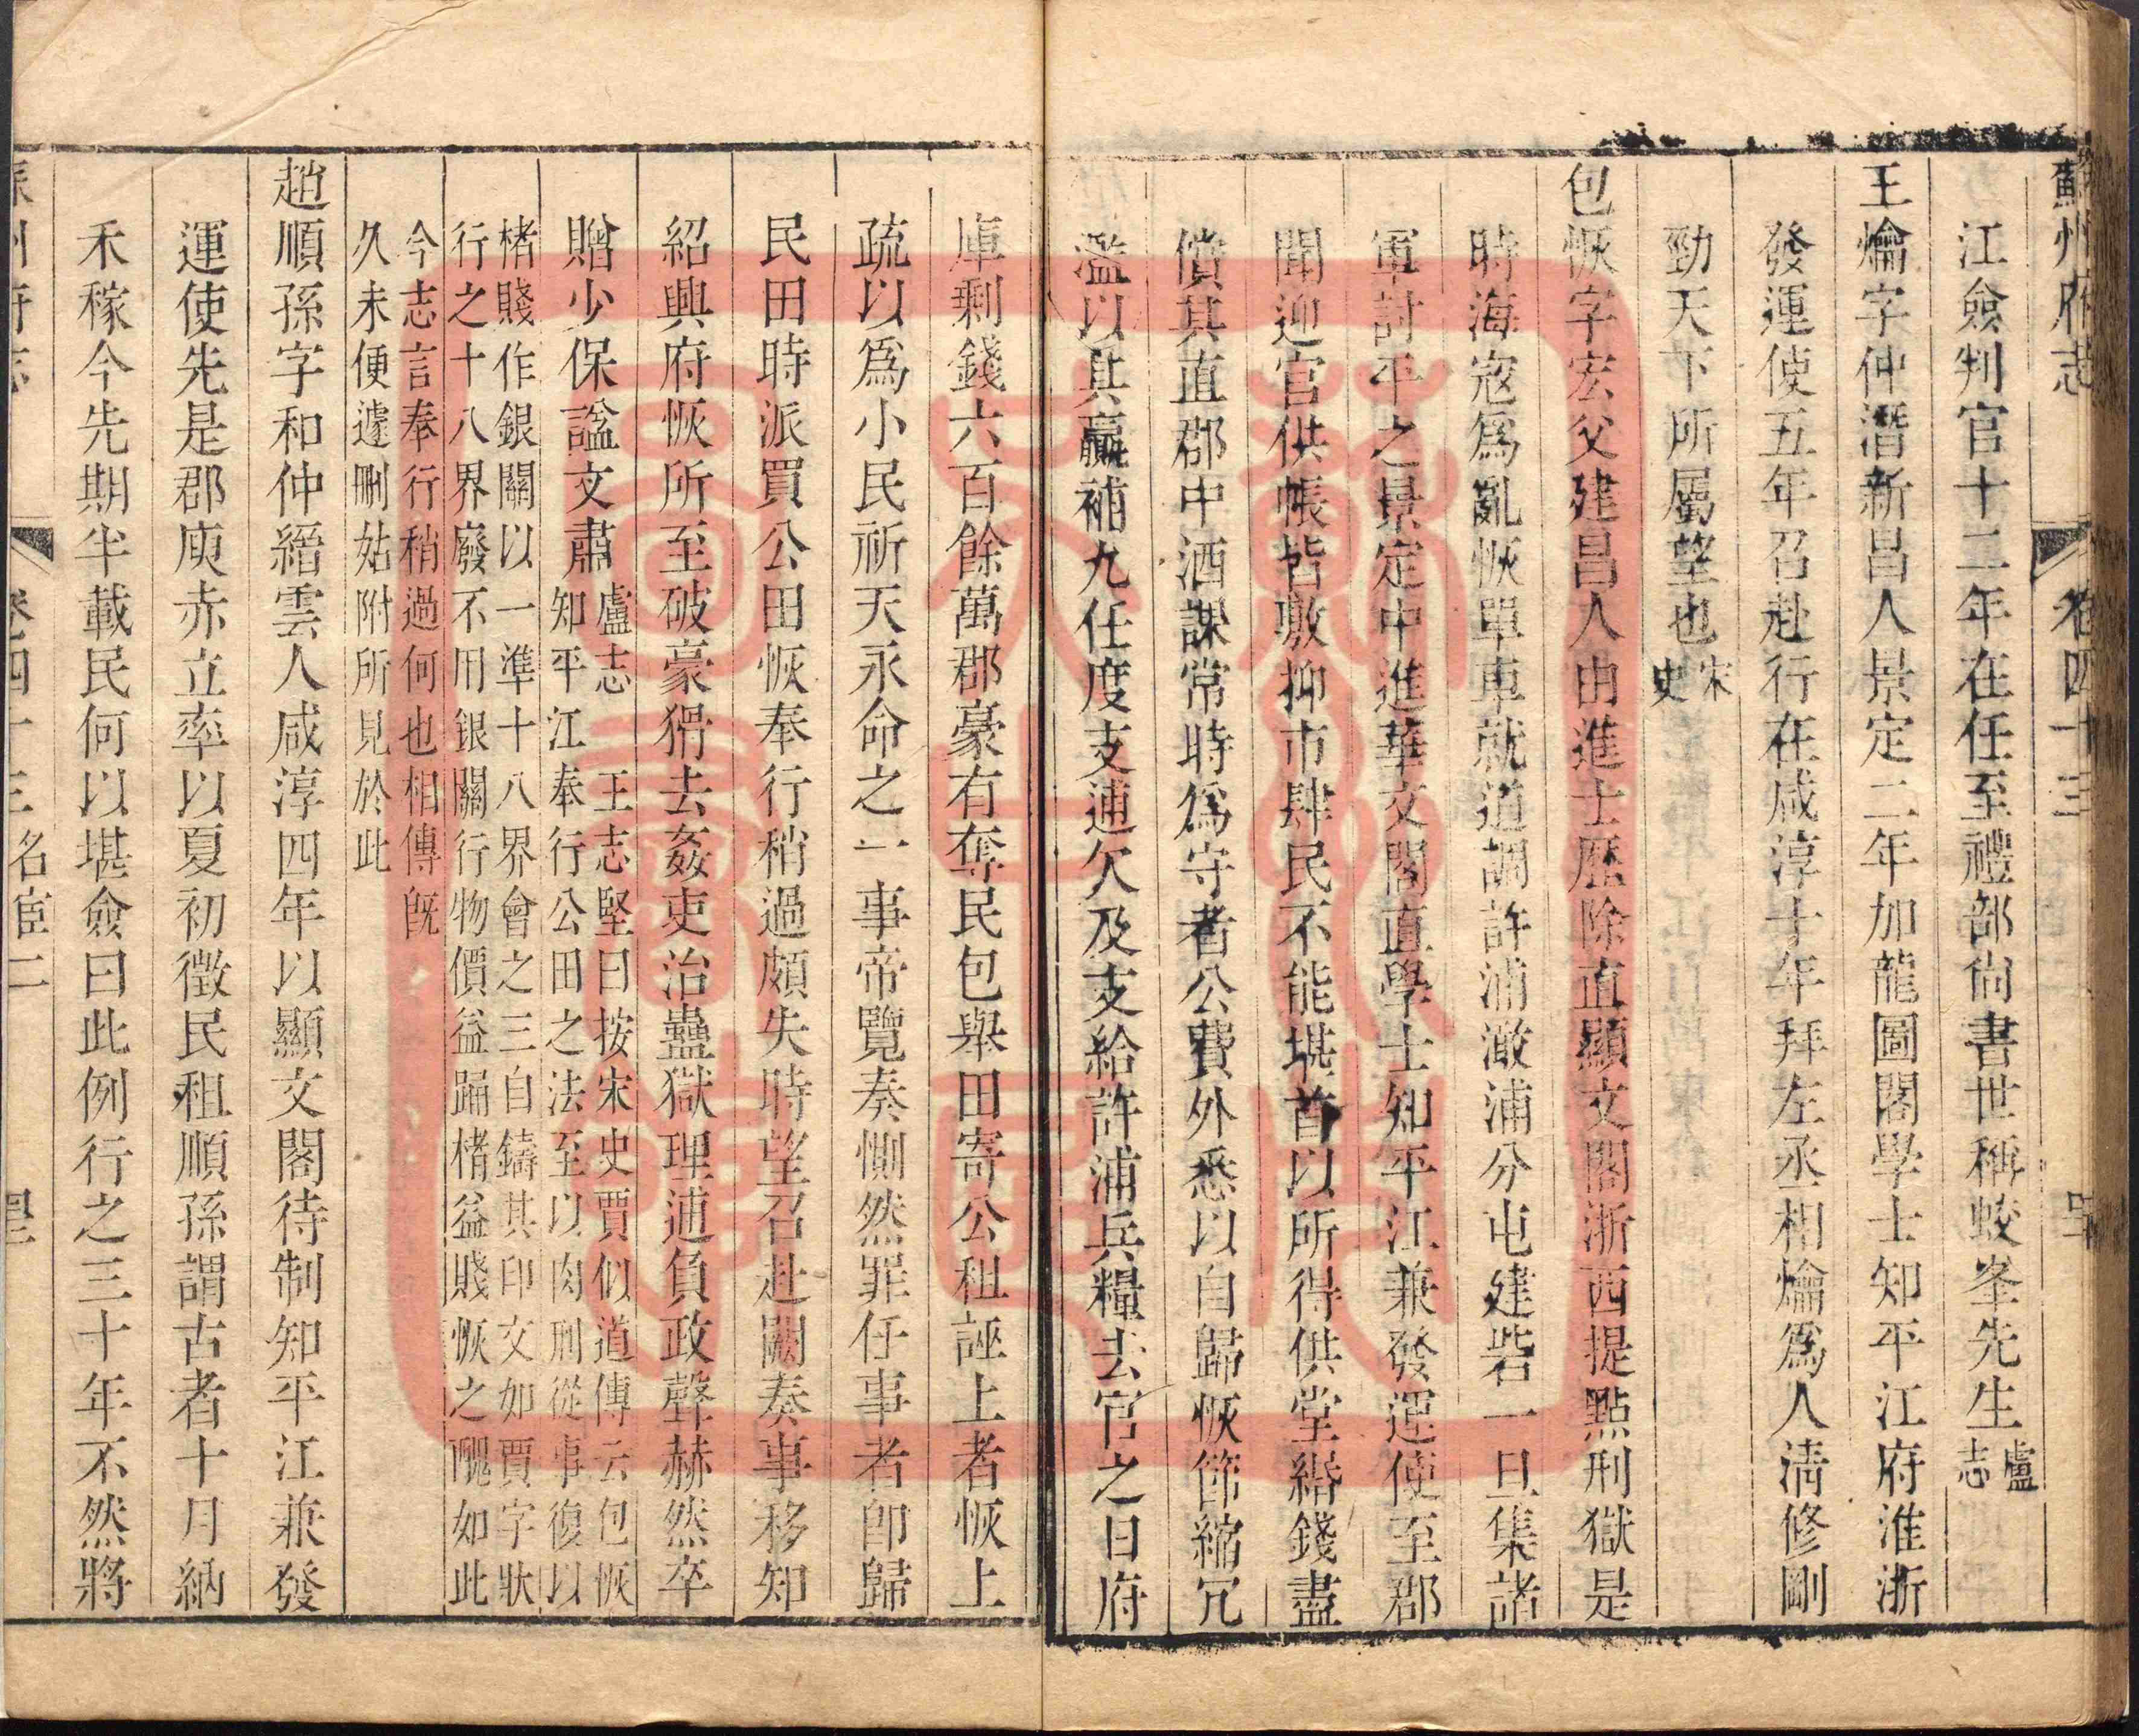 蘇州府志 卷四十三
江僉判官十二年在任至禮部尚書世稱蛟峯先生盧志
王爚字仲潛新昌人景定二年加龍圖閣學士知平江府淮浙
發運使五年召赴行在咸淳十年拜左丞相爚爲人清修剛
勁天下所屬望也宋史
包恢字宏父建昌人由進士歷除直顯文閣浙西提點刑獄是
時海寇爲亂恢單車就道調許浦澉浦分屯建砦一旦集諸
軍討平之景定中進華文閣直學士知平江兼發運使至郡
聞迎官供帳皆敷抑市肆民不能堪首以所得供堂緡錢盡
償其直郡中酒課常時爲守者公費外悉以自歸恢節縮冗
濫以其贏補九任度支逋欠及支給許浦兵糧去官之日府
庫剩錢六百餘萬郡豪有奪民包舉田寄公租誣上者恢上
疏以爲小民祈天永命之一事帝覽奏惻然罪任事者卽歸
民田時派買公田恢奉行稍過頗失時望召赴闕奏事移知
紹興府恢所至破豪猾去姦吏治蠱獄理逋負政聲赫然卒
贈少保諡文肅盧志 王志堅曰按宋史賈似道傳云包恢
知平江奉行公田之法至以肉刑從事復以
楮賤作銀關以一準十八界會之三自鑄其印文如賈字狀
行之十八界廢不用銀關行物價益踊楮益賤恢之醜如此
今志言奉行稍過何也相傳旣
久未便遽刪姑附所見於此
趙順孫字和仲縉雲人咸淳四年以顯文閣待制知平江兼發
運使先是郡庾赤立率以夏初徵民租順孫謂古者十月納
禾稼今先期半載民何以堪僉曰此例行之三十年不然將
卷四十三名宦二